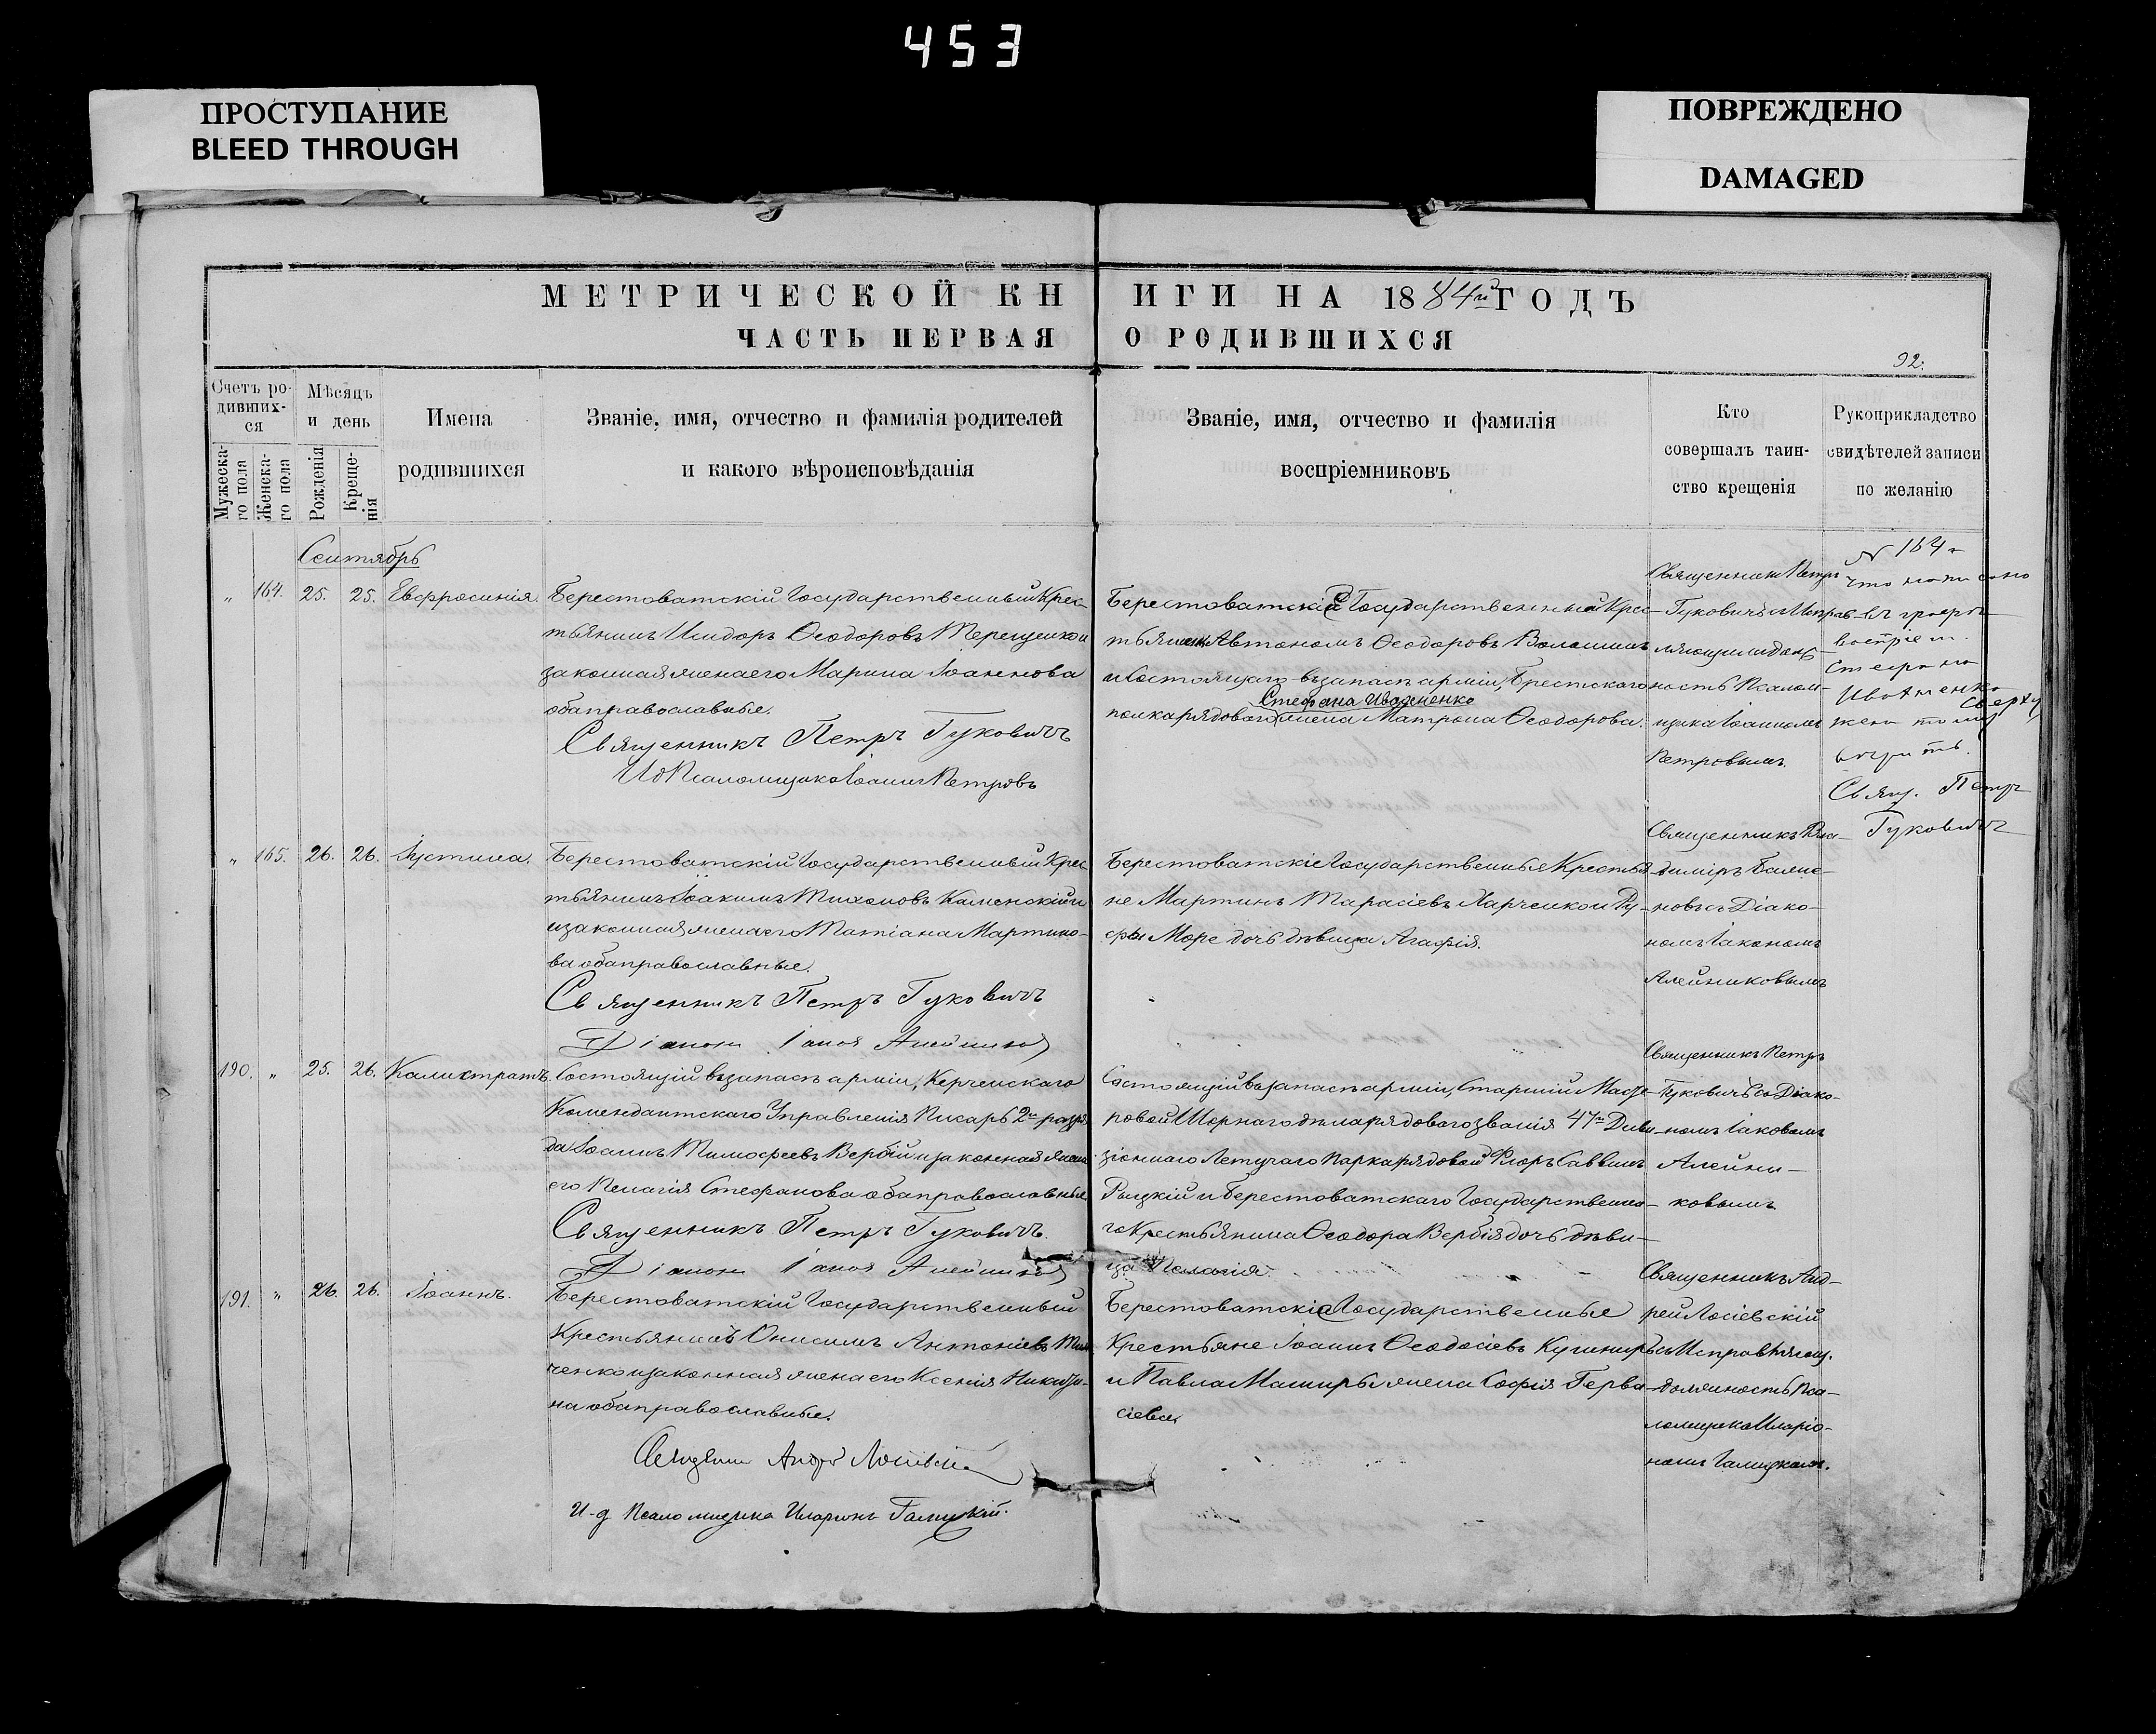 453
ПРОСТУПАНИЕ
BLEED THROUGH
ПОВРЕЖДЕНО
DAMAGED
МЕТРИЧЕСКОЙ КНИГИ НА 1884й ГОДЪ
ЧАСТЬ ПЕРВАЯ О РОДИВШИХСЯ
92.
Счетъ родившихся
Мужескаго пола
Женскаго пола
Мѣсяцъ и день
Рожденія
Крещенія
Имена
родившихся
Званіе, имя, отчество и фамилія родителей
и какого вѣроисповѣданія
Званіе, имя, отчество и фамилія
воспріемниковъ
Кто
совершалъ таин-
ство крещенія
Рукоприкладство
свидѣтелей записи
по желанію
Сентябрь
" 164. 25. 25. Евфросинія.
Берестоватскій Государственный Крес-
тьянинъ Исидоръ Ѳеодоровъ Терещенко и
законная жена его Марина Іоаннова
оба православные.
Священникъ Петръ Гуковичъ
И д Псаломщика Іоаннъ Петровъ
Берестоватскій Государственный Крес-
тьянинъ Автономъ Ѳеодоровъ Волошинъ
и Состоящаго въ запасѣ арміи, Брестскаго
Стефана Ивахненко
полка рядового жена Матрона Ѳеодорова.
Священникъ Петръ
Гуковичъ съ Исправ-
ляющимъ долж-
ность Псалом-
щика Іоанномъ
Петровымъ.
№ 164й
что написано
въ графѣ
воспріем.
Стефана
Ивахненко
сверху
Свящ. Петръ
Гуковичъ
" 165. 26. 26. Іустина.
Берестоватскій Государственный Крес-
тьянинъ Іоакимъ Тихоновъ Каменскій и
законная жена его Татіана Мартино-
ва оба православные.
Священникъ Петръ Гуковичъ
Діаконъ Іаковъ Алейниковъ
Берестоватскіе Государственные Крестья-
не Мартинъ Тарасіевъ Харченко и Ру-
фы Море дочь дѣвица Агафія.
Священникъ Вла-
диміръ Баже-
новъ съ Діако-
номъ Іаковомъ
Алейниковымъ
190. " 25. 26. Калистратъ.
Состоящій въ запасѣ арміи, Керченскаго
Комендантскаго Управленія Писарь 2го разря-
да Іоаннъ Тимофеевъ Вербій и законная жена
его Пелагія Стефанова оба православные
Священникъ Петръ Гуковичъ.
Діаконъ Іаковъ Алейниковъ
Состоящій въ запасѣ арміи, Старшій Масте-
ровой Шорнаго дѣла рядового званія 47й Диви-
зіоннаго Летучаго парка рядовой Флоръ Саввинъ
Рыцкій и Берестоватскаго Государственна-
го Крестьянина Ѳеодора Вербія дочь дѣви-
ца Пелагія.
Священникъ Петръ
Гуковичъ Со Діако-
номъ Іаковомъ
Алейни-
ковымъ
191. " 26. 26. Іоаннъ.
Берестоватскій Государственный
Крестьянинъ Онисимъ Антоніевъ
ченко и законная жена его Ксенія Никити-
на оба православные.
Священникъ Андрей Лосіевскій
И. д Псаломщика Иларіонъ Галицкій.
Берестоватскіе Государственные
Крестьяне Іоаннъ Ѳеодосіевъ Кушниръ
и Павла Машира жена Софія Герва-
сіева
Священникъ Анд-
рей Лосіевскій
съ Исправляющ.
должность Пса-
ломщика Иларіо-
номъ Галицкимъ.